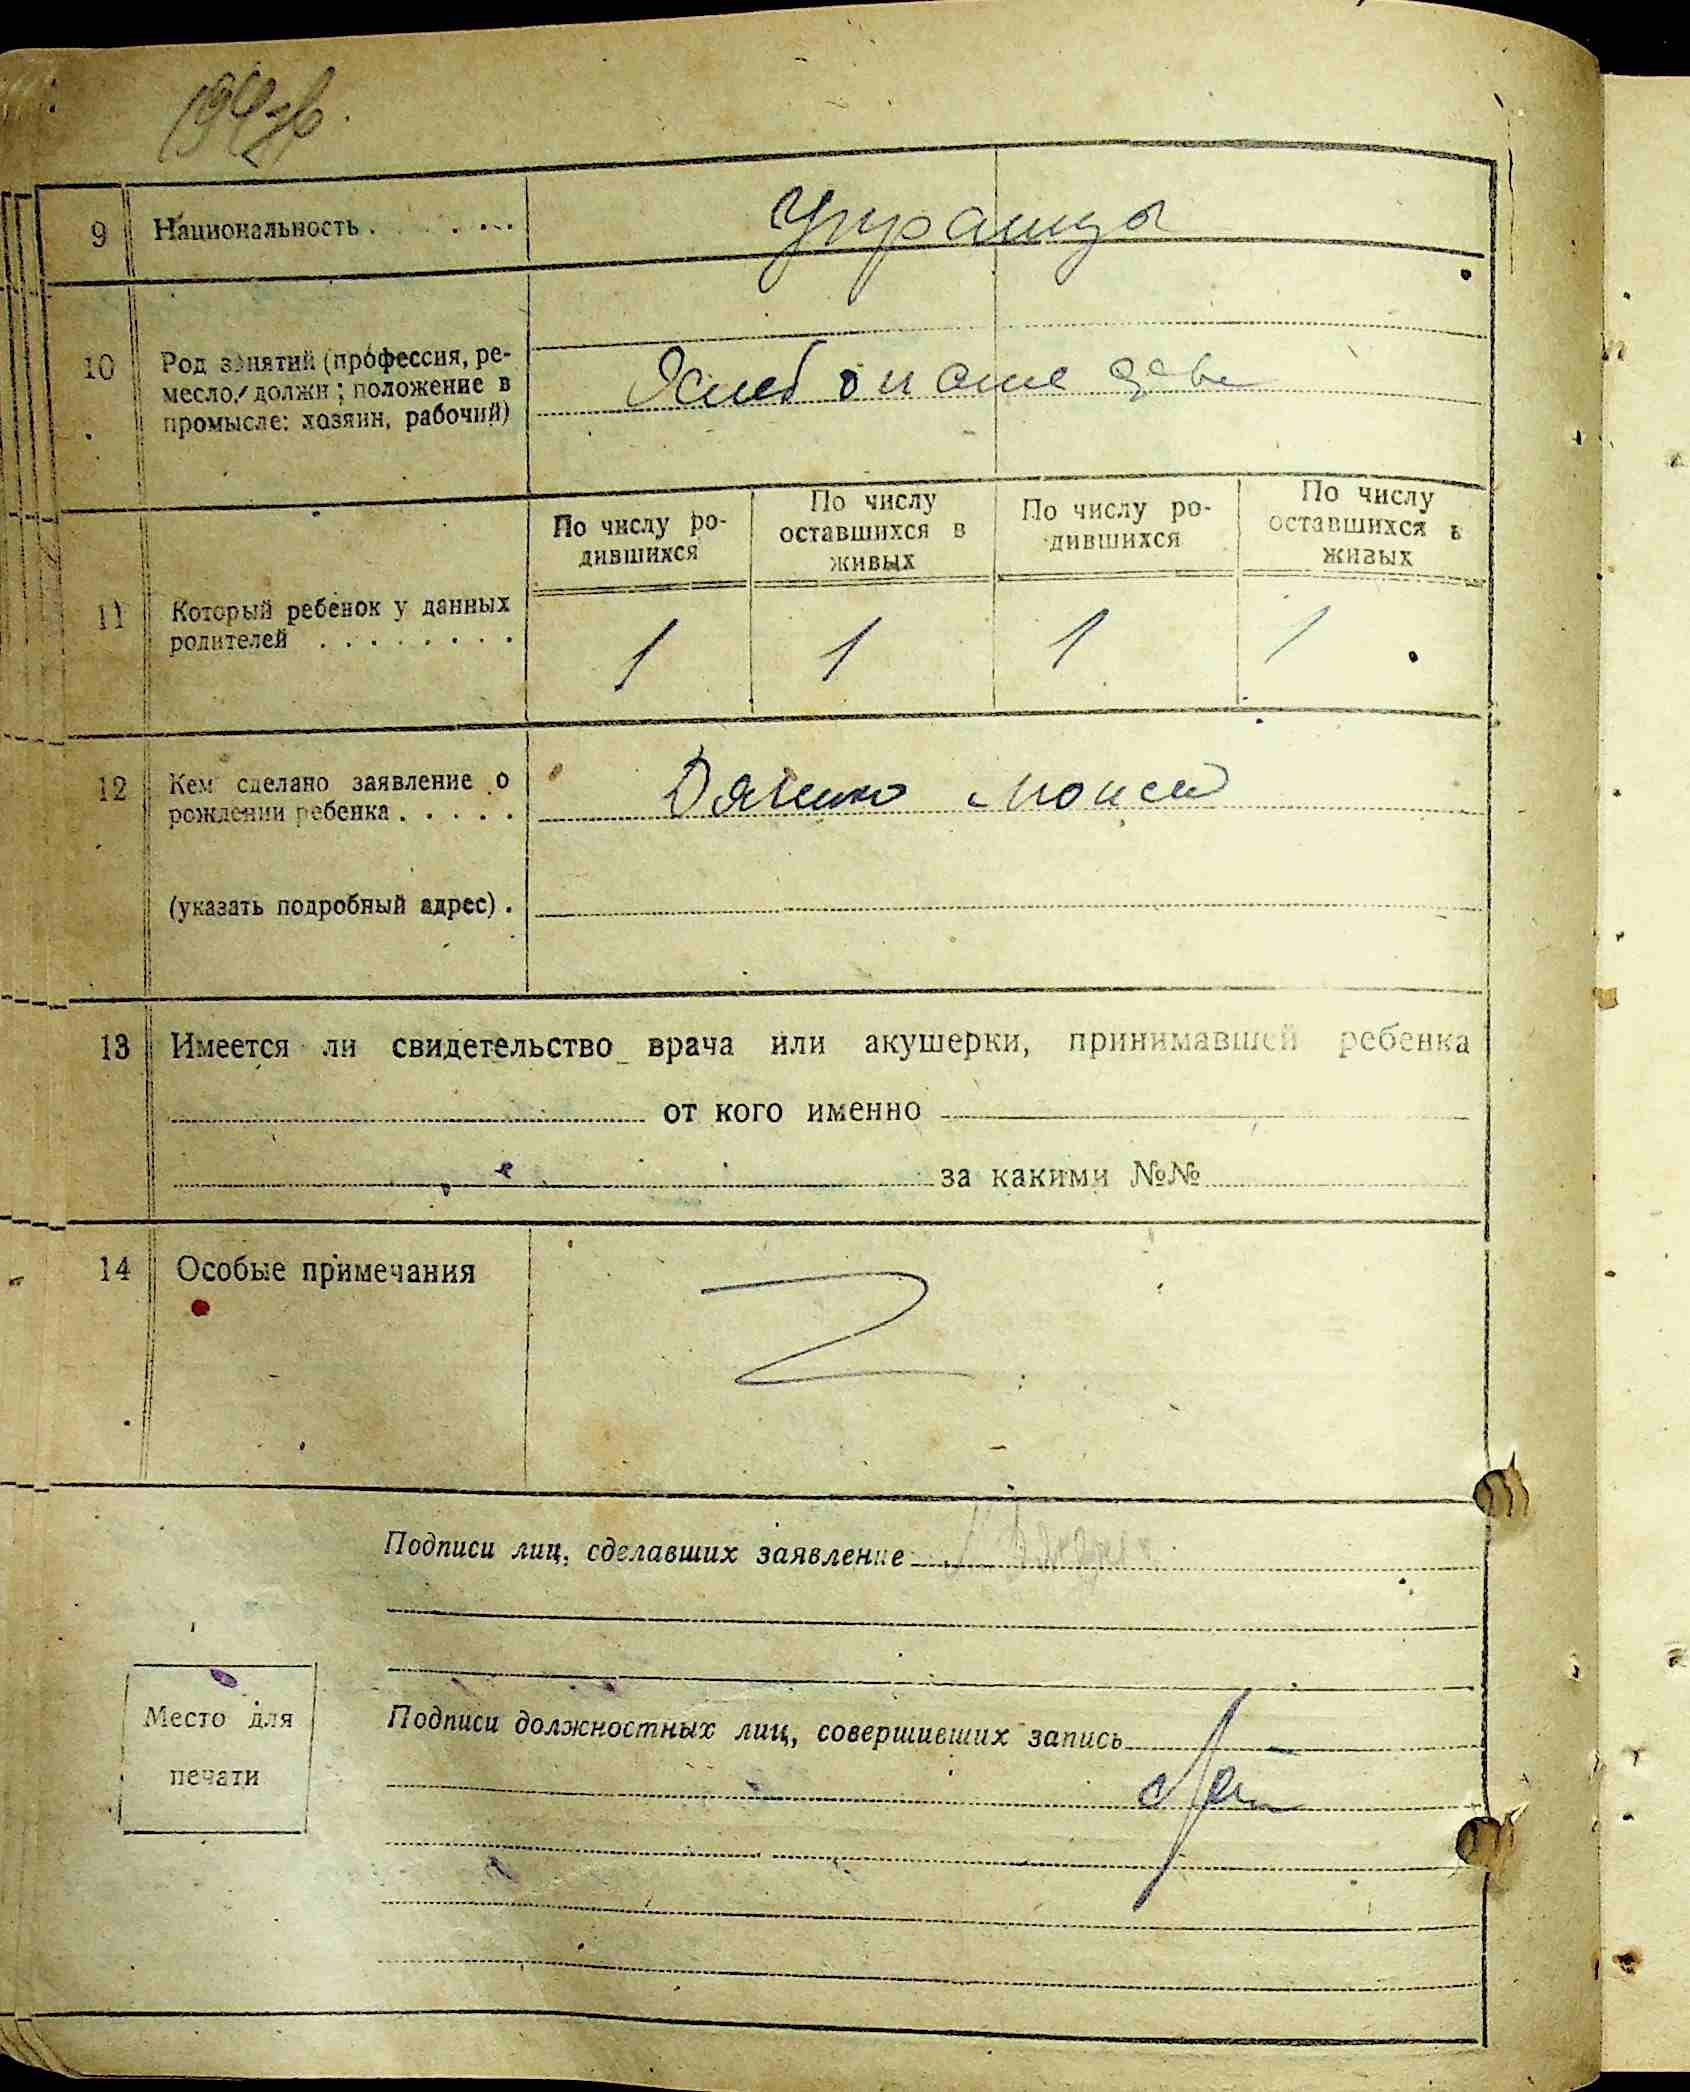 9 Национальность . . . . . . Украинцы
10 Род занятий (профессия, ре-
месло, должн; положение в
промысле: хозяин, рабочий)
Хлебопаше
По числу ро-
дившихся
По числу
оставшихся в
живых
По числу ро-
дившихся
По числу
оставшихся в
живых
11 Который ребенок у данных
родителей . . . . . . . .
1 1 1 1
12 Кем сделано заявление о
рождении ребенка . . . . .
Дяченко Моисей
(указать подробный адрес) .
13 Имеется ли свидетельство врача или акушерки, принимавшей ребенка
от кого именно
за какими №№
14 Особые примечания
Подписи лиц, сделавших заявление
Место для
печати
Подписи должностных лиц, совершивших запись